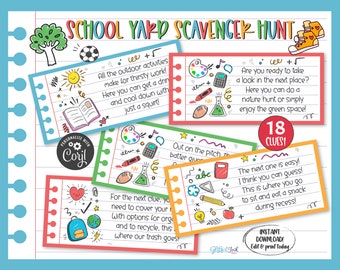 SCHOOL YARD SCAVENGER HUNT
All the outdoor activities
make for thirsty work!
Here you can get a drink
and cool down with
just a squirt!
Are you ready to take
a look in the next place?
Here you can do a
nature hunt or simply
enjoy the green space!
18
CLUES!
PERSONALIZE WITH
Corjl
Out on the pitch,
batter
The next one is easy!
I think you can guess!
This is where you go
to sit and eat a snack
during recess!
For the next clue,
need to cover your
With options for
and to recycle, this
where our trash goes!
INSTANT
DOWNLOAD!
Edit & print today!